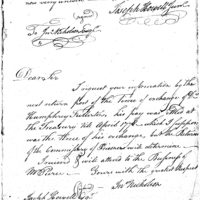 now very
(signed) Joseph Howell Junr
To Jno. Nicholson Esqr
(Copy)
Dear Sir
I request your information by the
next return post of the time of exchange of
Humphrey Fullerton, his pay was settled at
the Treasury till April 17 which I suppose
was the time of his exchange, but the Returns
of the Commissary of Prisoners will determine
I will attend to the Business of
Mr Pierce Yours with the greatest Respect
Jno Nicholson
Joseph Howell Esqr